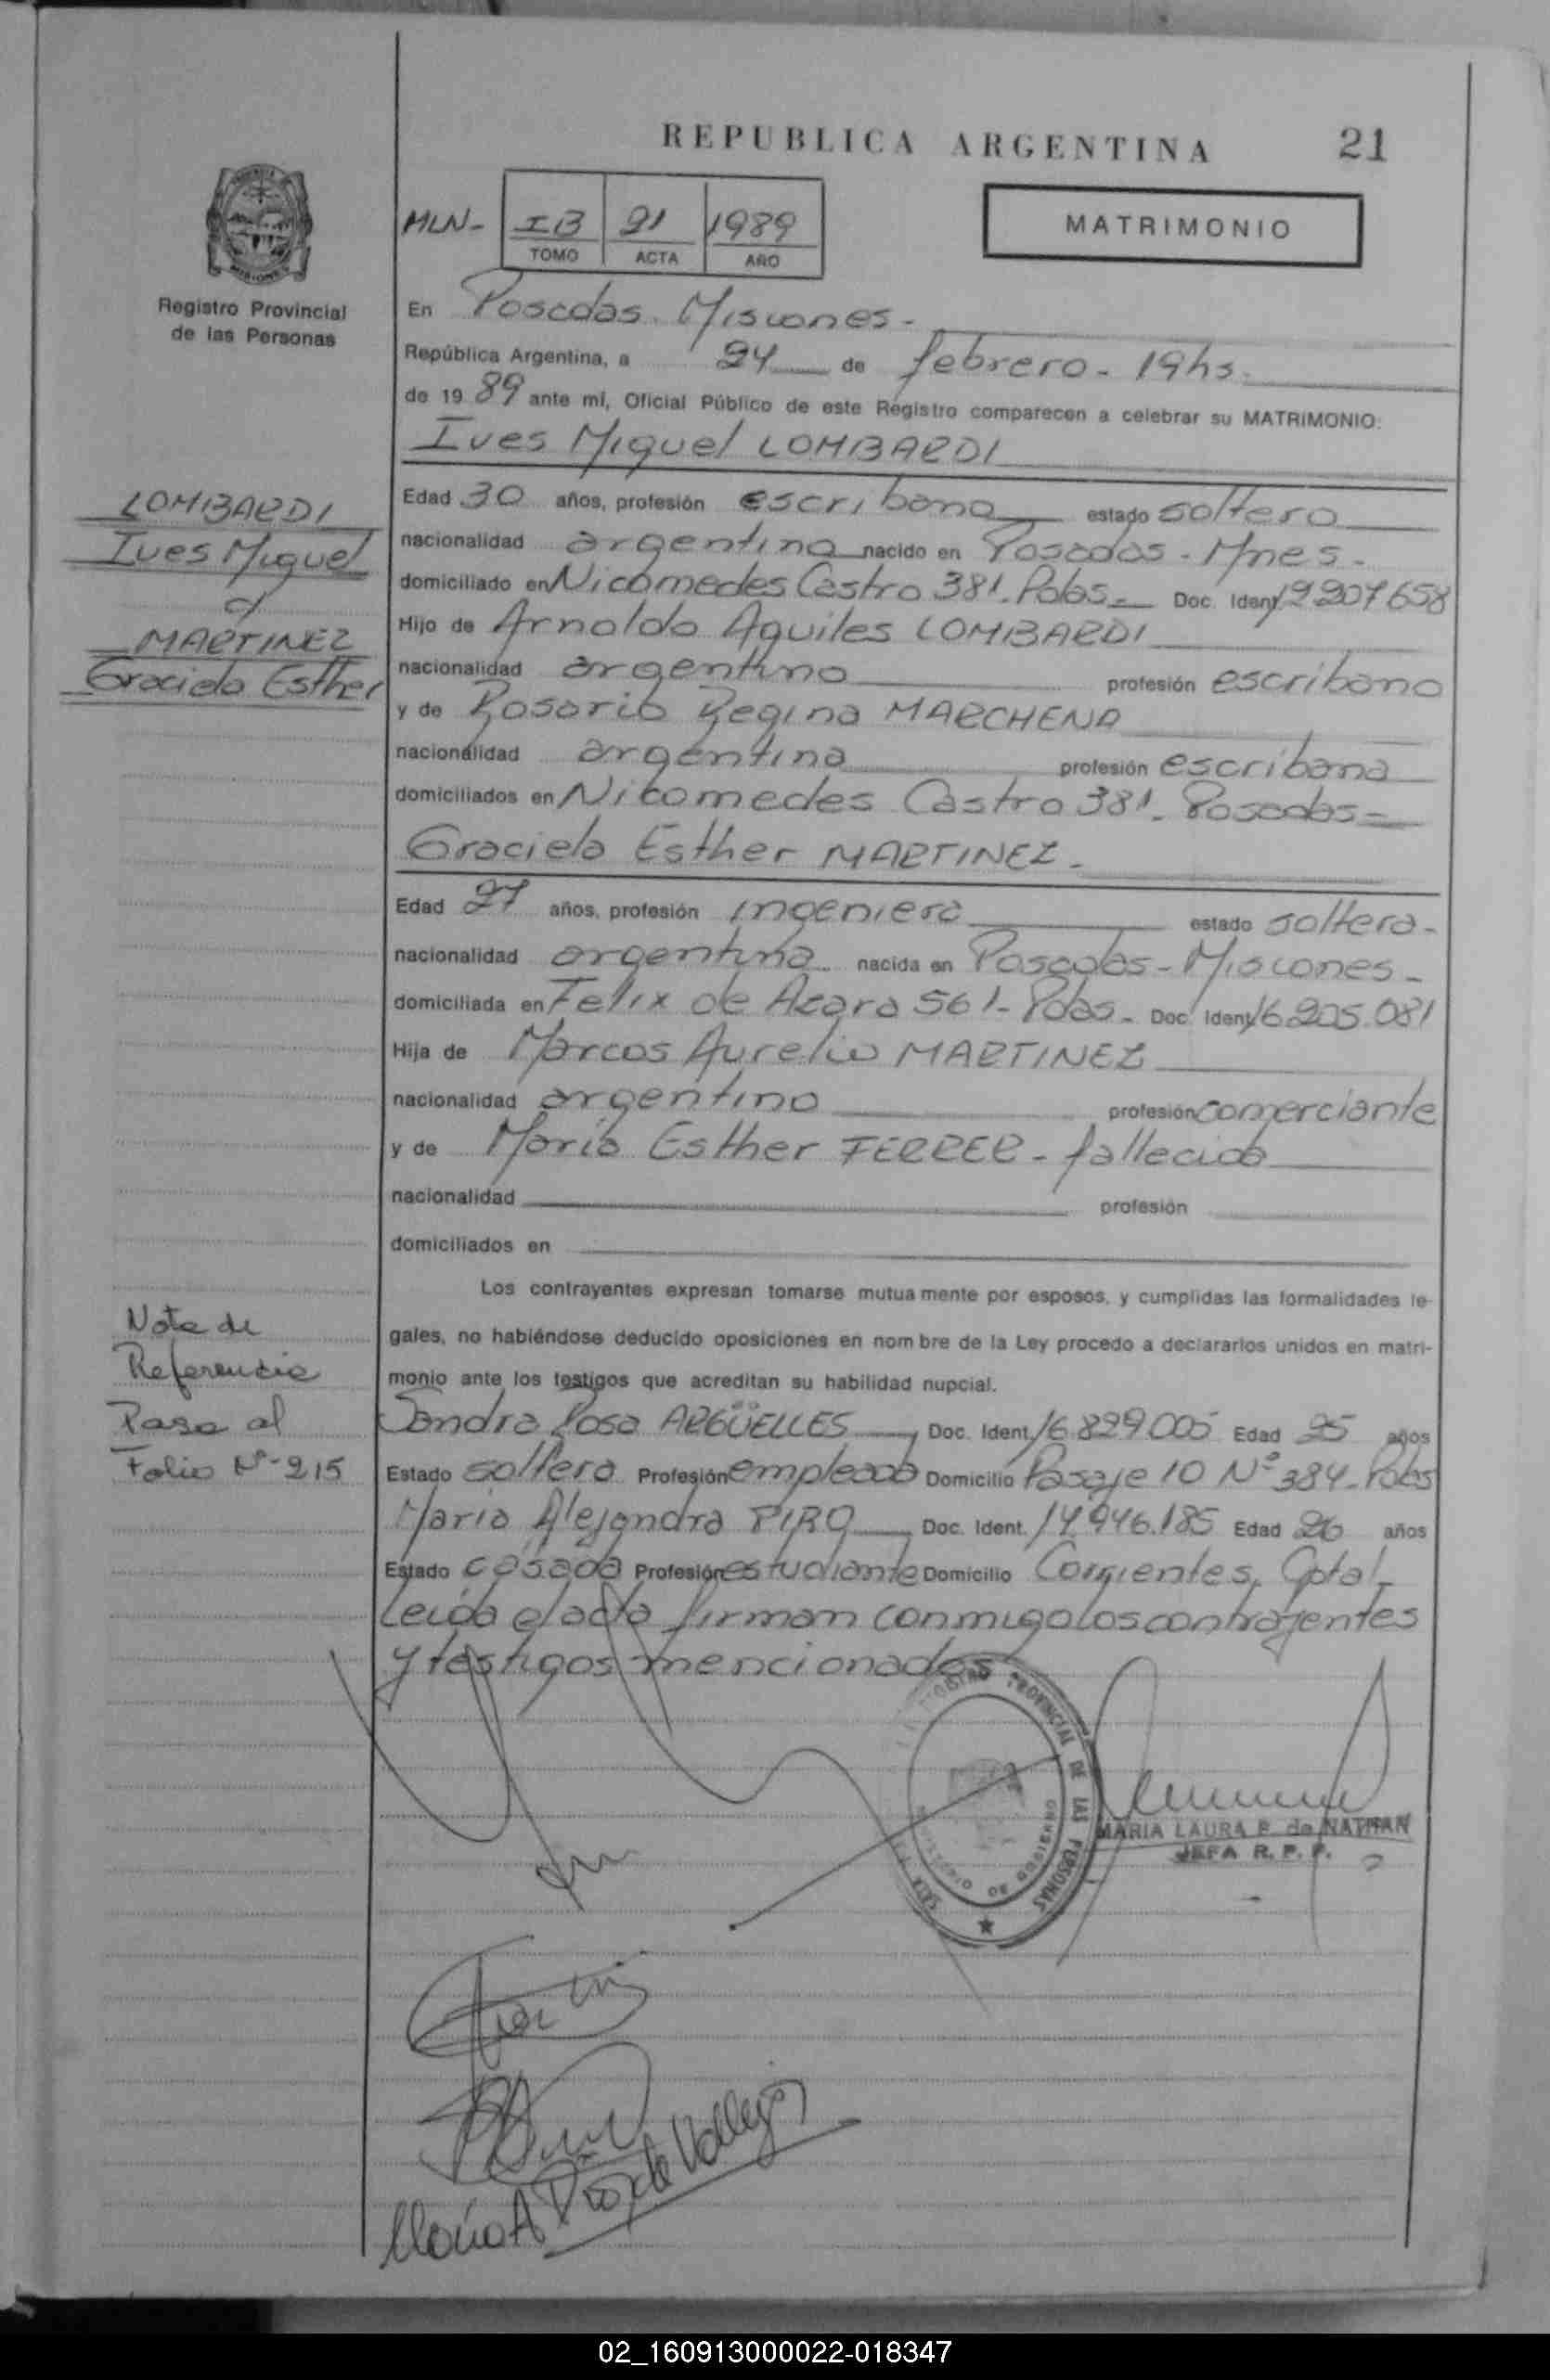 REPUBLICA ARGENTINA
21
MLN- IB 21 1989
TOMO ACTA AÑO
MATRIMONIO
MISIONES
Registro Provincial
de las Personas
En Posadas. Misiones-
República Argentina, a 24 de febrero. 19hs.
de 19 89 ante mí, Oficial Público de este Registro comparecen a celebrar su MATRIMONIO:
Ives Miguel LOMBARDI
Edad 30 años, profesión escribano estado soltero
nacionalidad argentino nacido en Posadas - Mnes.
domiciliado en Nicomedes Castro 381. Pdas- Doc. Ident. 12.207.658
Hijo de Arnoldo Aquiles LOMBARDI
nacionalidad argentino profesión escribano
y de Rosario Regina MARCHENA
nacionalidad argentina profesión escribana
domiciliados en Nicomedes Castro 381. Posadas-
Graciela Esther MARTINEZ.
Edad 27 años, profesión ingeniera estado soltera-
nacionalidad argentina nacida en Posadas - Misiones-
domiciliada en Felix de Azara 561- Pdas- Doc. Ident. 16.205.081
Hija de Marcos Aurelio MARTINEZ
nacionalidad argentino profesión comerciante
y de María Esther FERRER - fallecida
nacionalidad profesión
domiciliados en
Los contrayentes expresan tomarse mutuamente por esposos, y cumplidas las formalidades le-
gales, no habiéndose deducido oposiciones en nombre de la Ley procedo a declararlos unidos en matri-
monio ante los testigos que acreditan su habilidad nupcial.
Sandra Rosa ARGÜELLES Doc. Ident. 16.829.005 Edad 25 años
Estado soltera Profesión empleada Domicilio Pasaje 10 Nº 384- Pdas
María Alejandra PIRO Doc. Ident. 14.946.185 Edad 26 años
Estado casada Profesión estudiante Domicilio Corrientes, Cptal-
Leida el acta firman conmigo los contrayentes
y testigos mencionados
LOMBARDI
Ives Miguel
c/
MARTINEZ
Graciela Esther
Nota de
Referencia
Pasa al
Folio Nº 215
REGISTRO PROVINCIAL DE LAS PERSONAS
MARIA LAURA P. de NATHAN
JEFA R. P. P.
María A
02_160913000022-018347